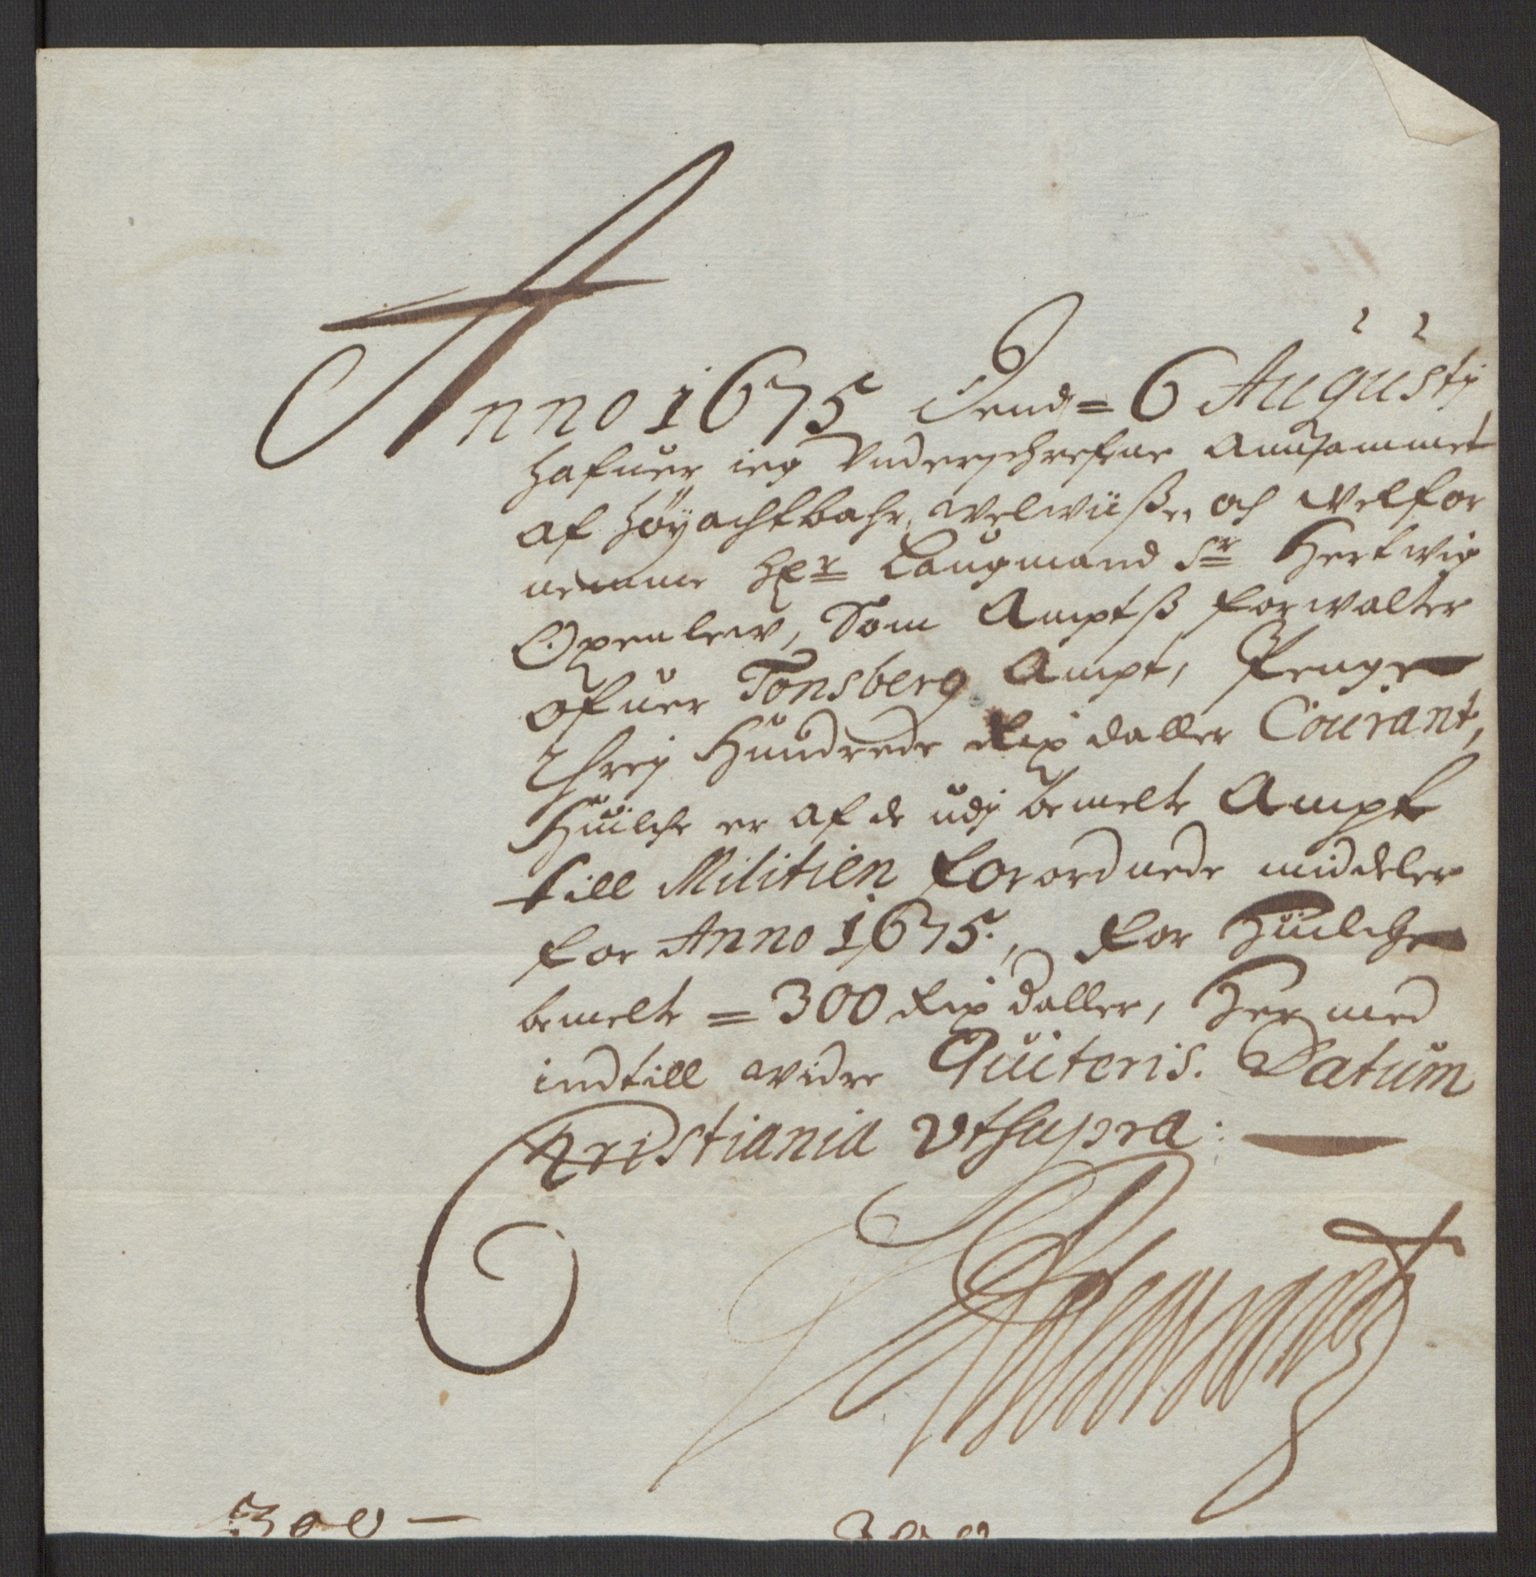 Anno 1675 Dend = 6 Augustij
hafuer ieg Vnderschrefne Annammet
af höyachtbahr, welwiiße, och velfor
nemme Hr Laugmand Sr Hertwig
Openlew, Som Amptß forwalter
ofuer Tonsberg Ampt, Penge
threj Hundrede Rix daller Courant,
Huilche er af de udj bemelte Ampt
till Militien forordnede middeler
for Anno 1675., for Huilche
bemelte = 300 Rix daller, Hermed
indtill widre Quiteris. Datum
Christiania Vtsupra:
300 —
300